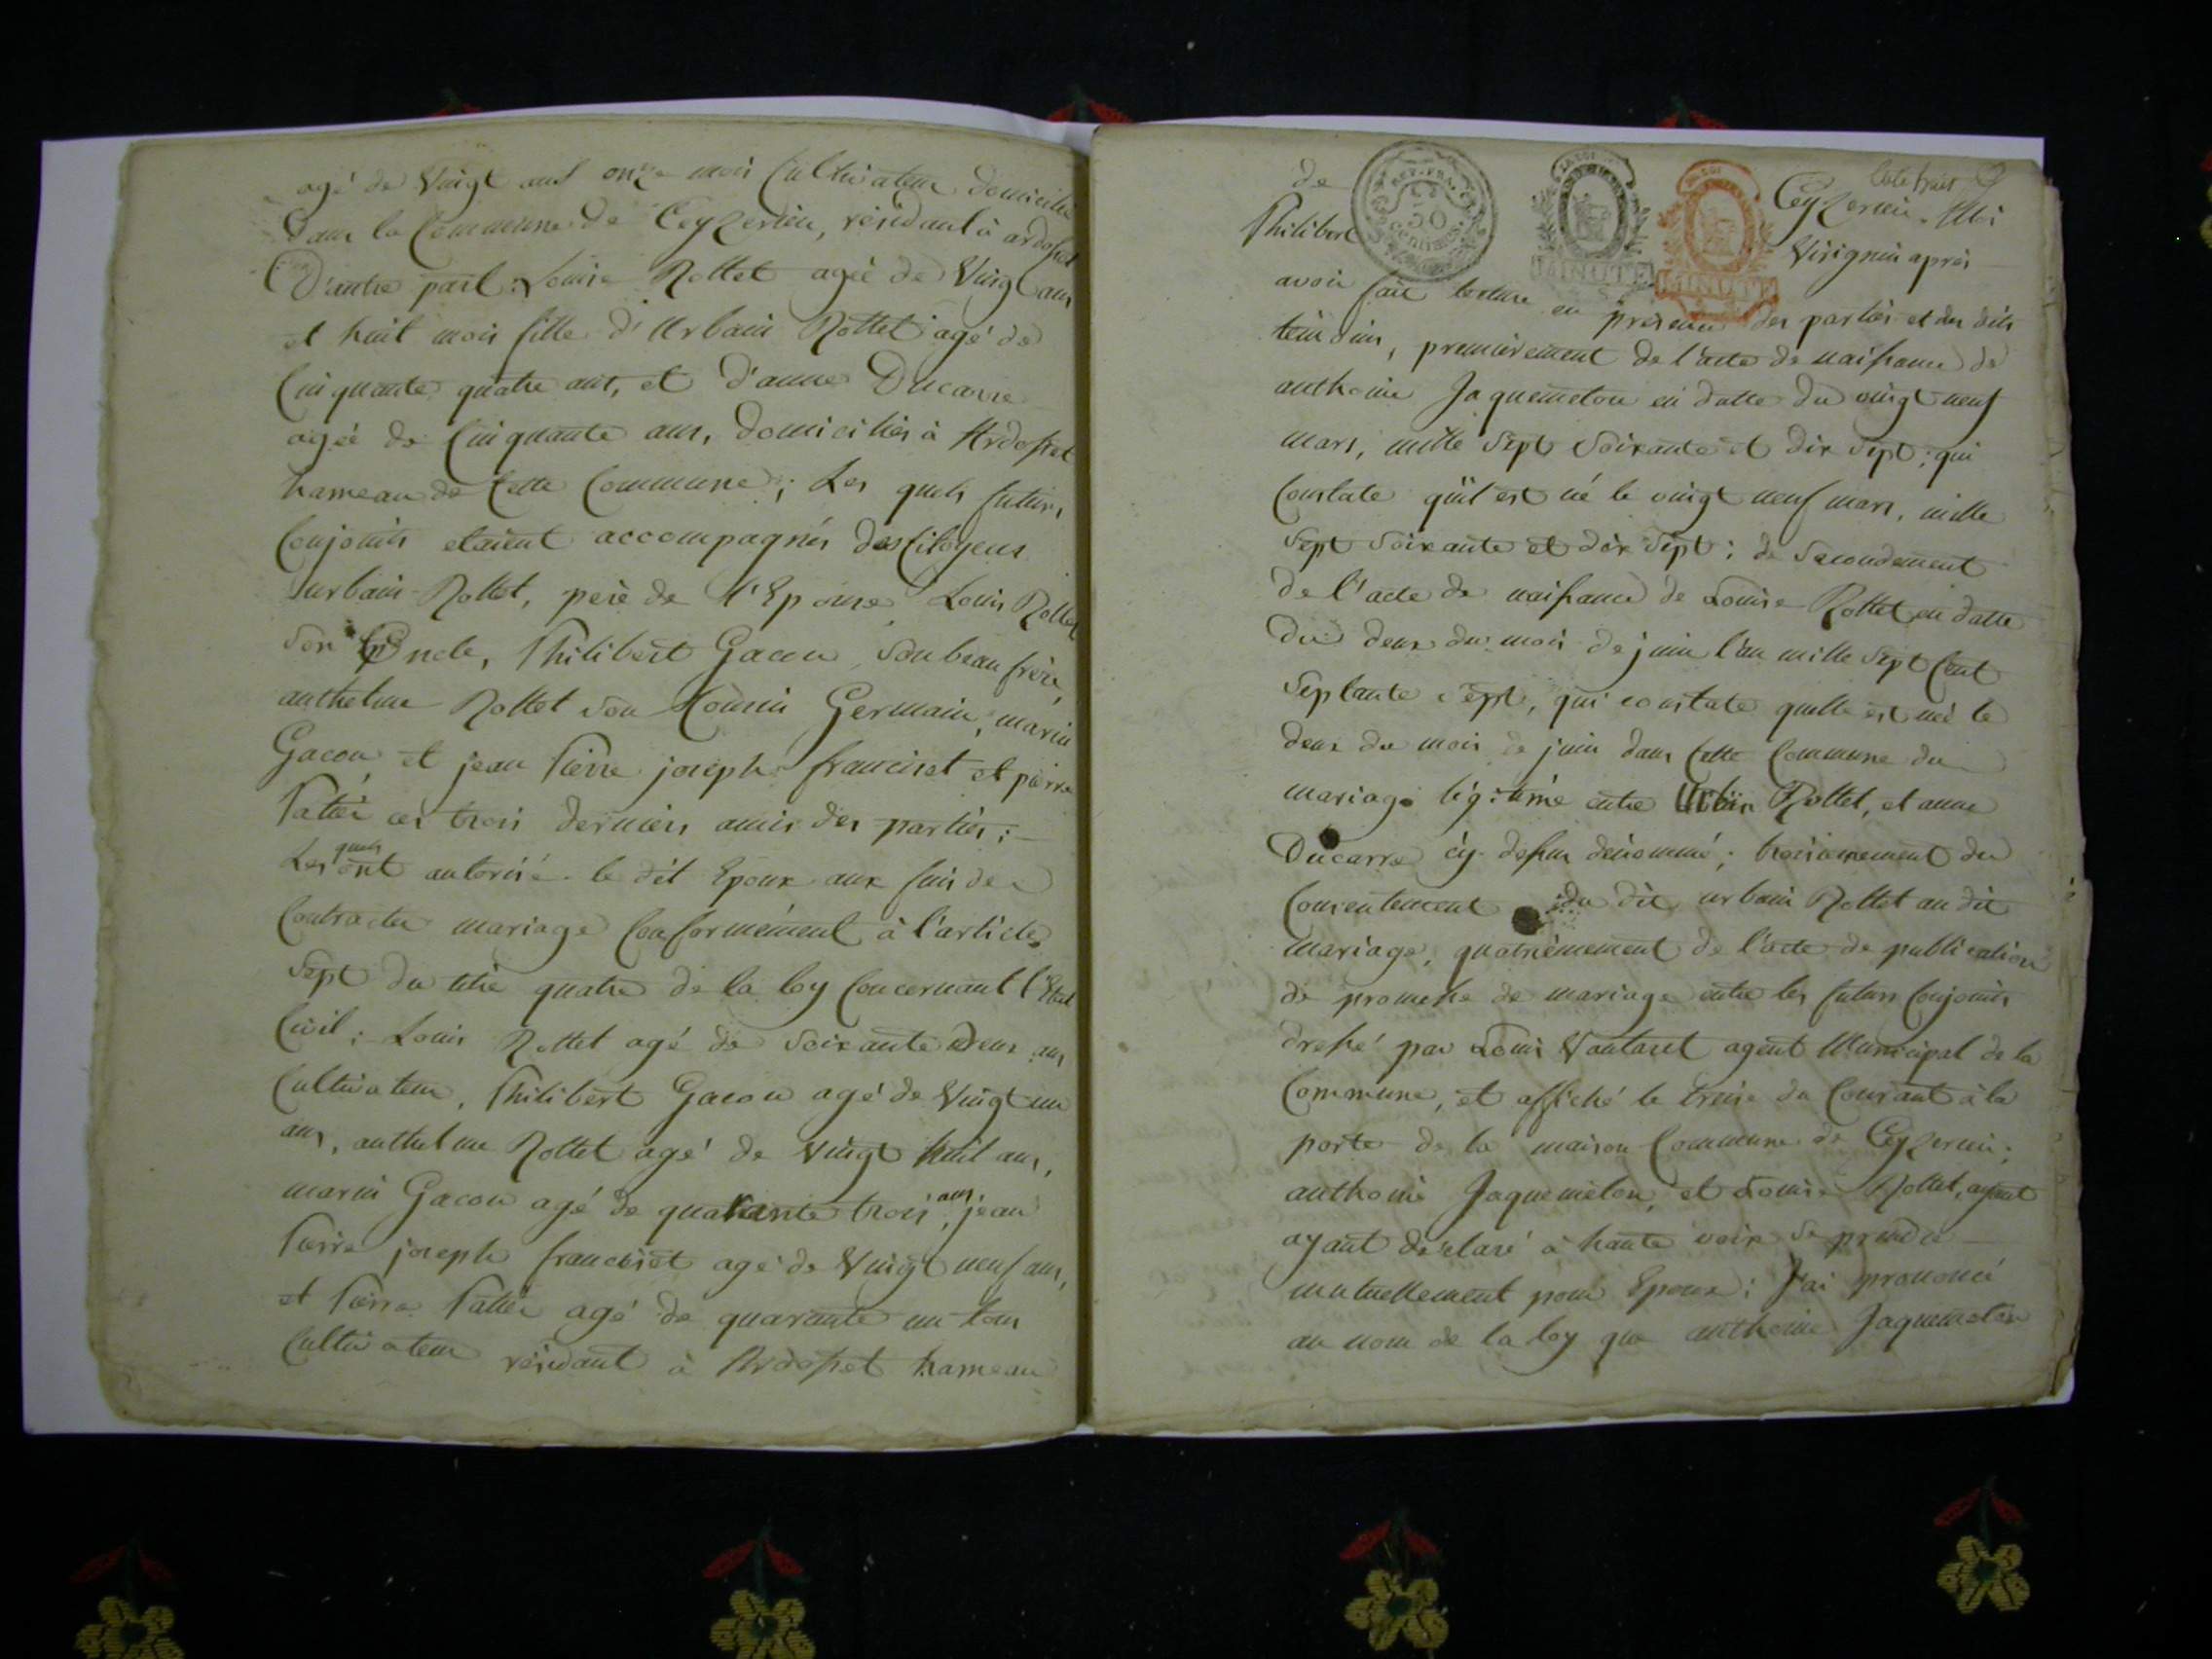 agé de Vingt ans onze mois Cultivateur domicilié
Dans la Commune de Ceyzerieu, résidant à ardosset
D'autre part : Louise Rottet agée de Vingt ans
et huit mois fille d'Urbain Rottet agé de
Cinquante quatre ans, et D'anne Ducarre
agée de Cinquante ans, domiciliés à Ardosset
hameau de Cette Commune ; Les quels futurs
Conjoints etaient accompagnés des Citoyens
urbain Rottet, père de l'Epouse Louis Rottet
Son Oncle, Philibert Gacon, Son beau frère,
anthelme Rottet Son Cousin Germain, marin
Gacon et jean Pierre joseph franciset et pierre
Pattéi ces trois derniers amis des parties ;
Les quels ont autorisé le dit Epoux aux fins de
Contracter mariage Conformément à l'article
Sept du titre quatre de la loy Concernant l'Etat
Civil ; Louis Rottet agé de Soixante Deux ans
Cultivateur, Philibert Gacon agé de Vingt un
ans, anthelme Rottet agé de Vingt huit ans,
marin Gacon agé de quarante trois ans, jean
Pierre joseph franciset agé de Vingt neuf ans,
et Pierre Pattéi agé de quarante un tous
Cultivateur résidant à Ardosset hameau
de Ceyzerieu. Moi
Philibert Virignin après
REP. FRA.
50
centimes
LA LOI
MINUTE
MINUTE
avoir fait lecture en présence des parties et des dits
temoins, premièrement de l'acte de naissance de
anthoine Jaquemeton en datte du vingt neuf
mars, mille Sept Soixante et dix Sept ; qui
Constate qu'il est né le vingt neuf mars, mille
Sept Soixante et dix Sept ; de Secondement
De l'acte de naissance de Louise Rottet en datte
Du deux du mois de juin l'an mille Sept Cent
Septante Sept, qui constate quelle est née le
deux du mois de juin dans Cette Commune du
mariage légitime entre Urbin Rottet, et anne
Ducarre cy dessus dénommé ; troisièmement du
Consentement du dit urbain Rottet au dit
mariage, quatrièmement de l'acte de publication
de promesse de mariage entre les futurs Conjoints
dressé par Louis Vantaret agent Municipal de la
Commune, et affiché le treize du Courant à la
porte de la maison Commune de Ceyzerieu ;
anthoine Jaquemeton, et Louise Rottet, ayant
ayant déclaré à haute voix Se prendre
mutuellement pour Epoux ; J'ai prononcé
au nom de la loy que anthoine Jaquemeton